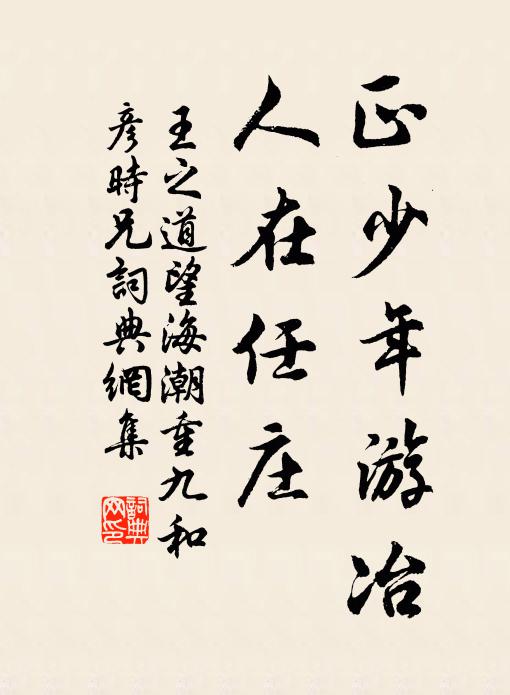 正少年游冶
人在任庄
王之道望海潮重九和
彦時兄詞典網集
詞典
网印